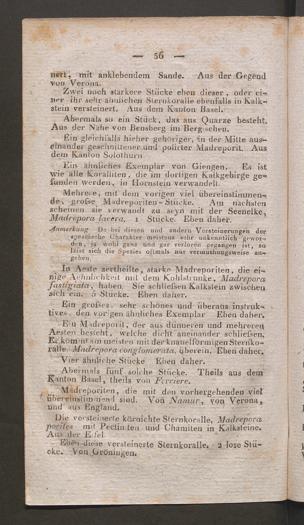 — 56 —
nert, mit anklebendem Sande. Aus der Gegend
von Verona.
Zwei noch stärkere Stücke eben dieser, oder ei-
ner ihr sehr ähnlichen Sternkoralle ebenfalls in Kalk-
stein versteinert. Aus dem Kanton Basel.
Abermals so ein Stück, das aus Quarze besteht.
Aus der Nähe von Bensberg im Bergschen.
Ein gleichfalls hieher gehöriger, in der Mitte aus-
einander geschnittener und polirter Madreporit. Aus
dem Kanton Solothurn.
Ein ähnliches Exemplar von Giengen. Es ist
wie alle Koralliten, die im dortigen Kalkgebirge ge-
funden werden, in Hornstein verwandelt.
Mehrere, mit dem vorigen viel übereinstimmen-
de, große Madreporiten-Stücke. Am nächsten
scheinen sie verwandt zu seyn mit der Seenelke,
Madrepora lacera. 1 Stücke. Eben daher.
Anmerkung. Da bei diesen und andern Versteinerungen der
spezifische Charakter meistens sehr unkenntlich gewor-
den, ja wohl ganz und gar verloren gegangen ist, so
lässt sich die Spezies oftmals nur vermuthungsweise an-
geben.
In Aeste zertheilte, starke Madreporiten, die ei-
nige Aehnlichkeit mit dem Kohlstrunke, Madrepora
fastigiata, haben. Sie schließen Kalkstein zwischen
sich ein. 5 Stücke. Eben daher.
Ein großes, sehr schönes und überaus instruk-
tives, den vorigen ähnliches Exemplar. Eben daher.
Ein Madreporit, der aus dünneren und mehreren
Aesten besteht, welche dicht aneinander schließen.
Er kommt am meisten mit der knauelförmigen Sternko-
ralle, Madrepora conglomerata, überein. Eben daher.
Vier ähnliche Stücke. Eben daher.
Abermals fünf solche Stücke. Theils aus dem
Kanton Basel, theils von Ferriere.
Madreporiten, die mit den vorhergehenden viel
übereinstimmend sind. Von Namur, von Verona,
und aus England.
Die versteinerte körnichte Sternkoralle, Madrepora
porites mit Pectiniten und Chamiten in Kalksteine.
Aus der Eifel.
Eben diese versteinerte Sternkoralle. 2 lose Stü-
cke. Von Gröningen.